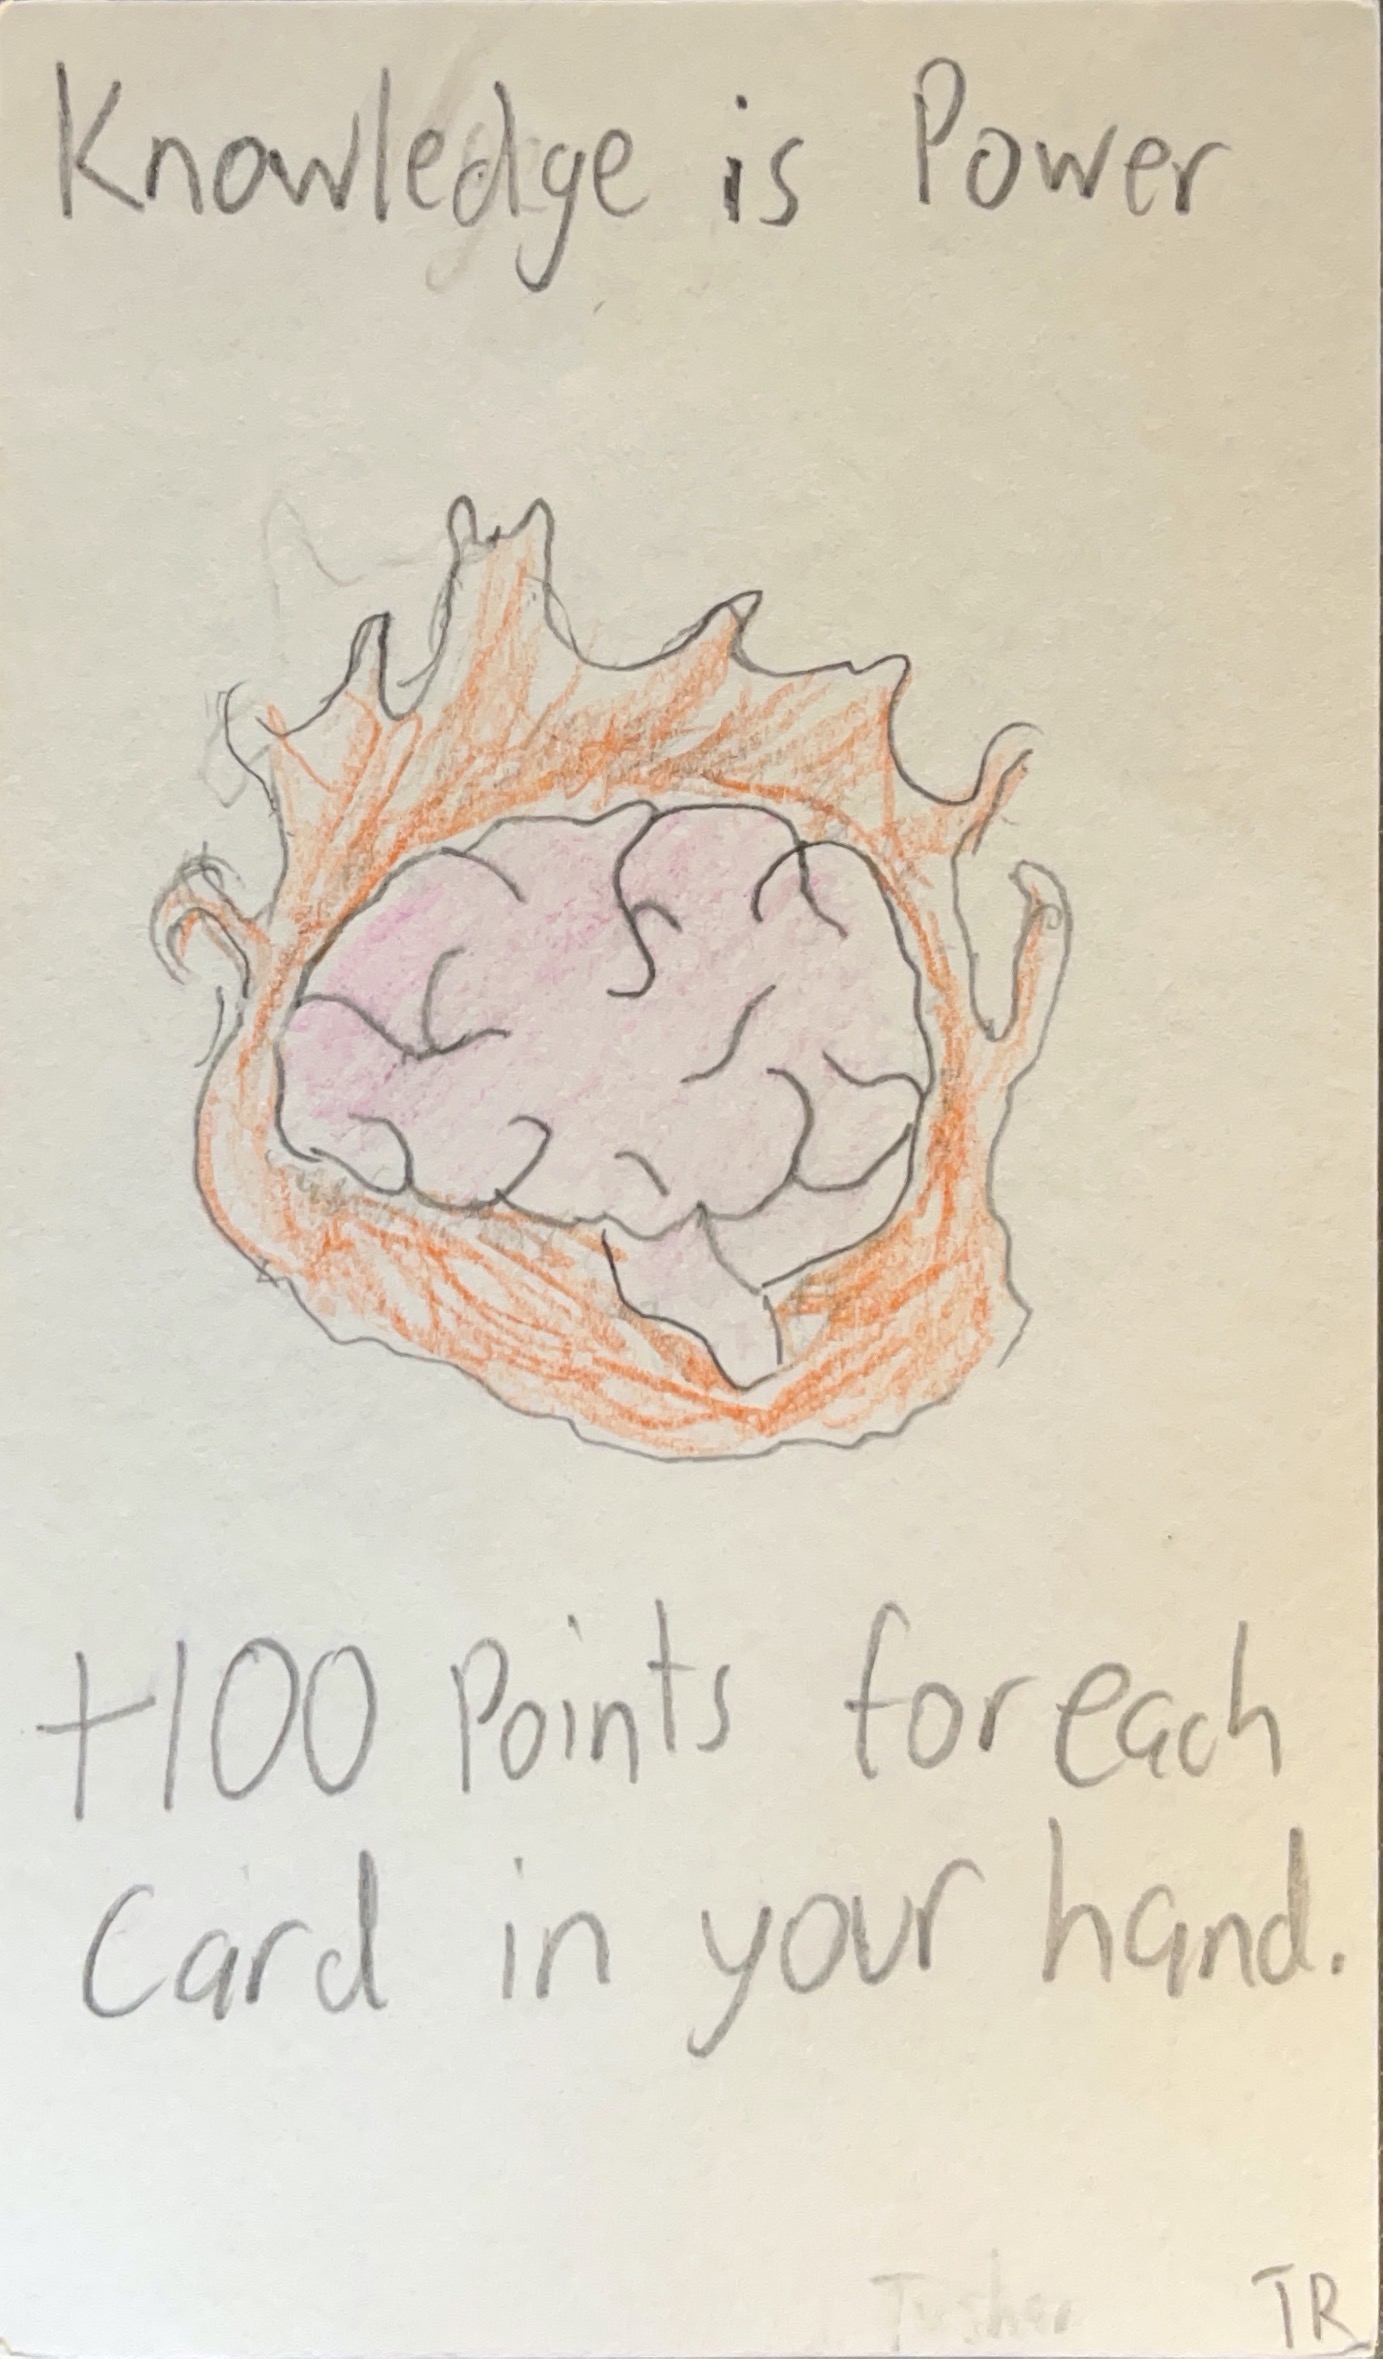 Knowledge is Power
+100 Points for each
Card in your hand.
TR